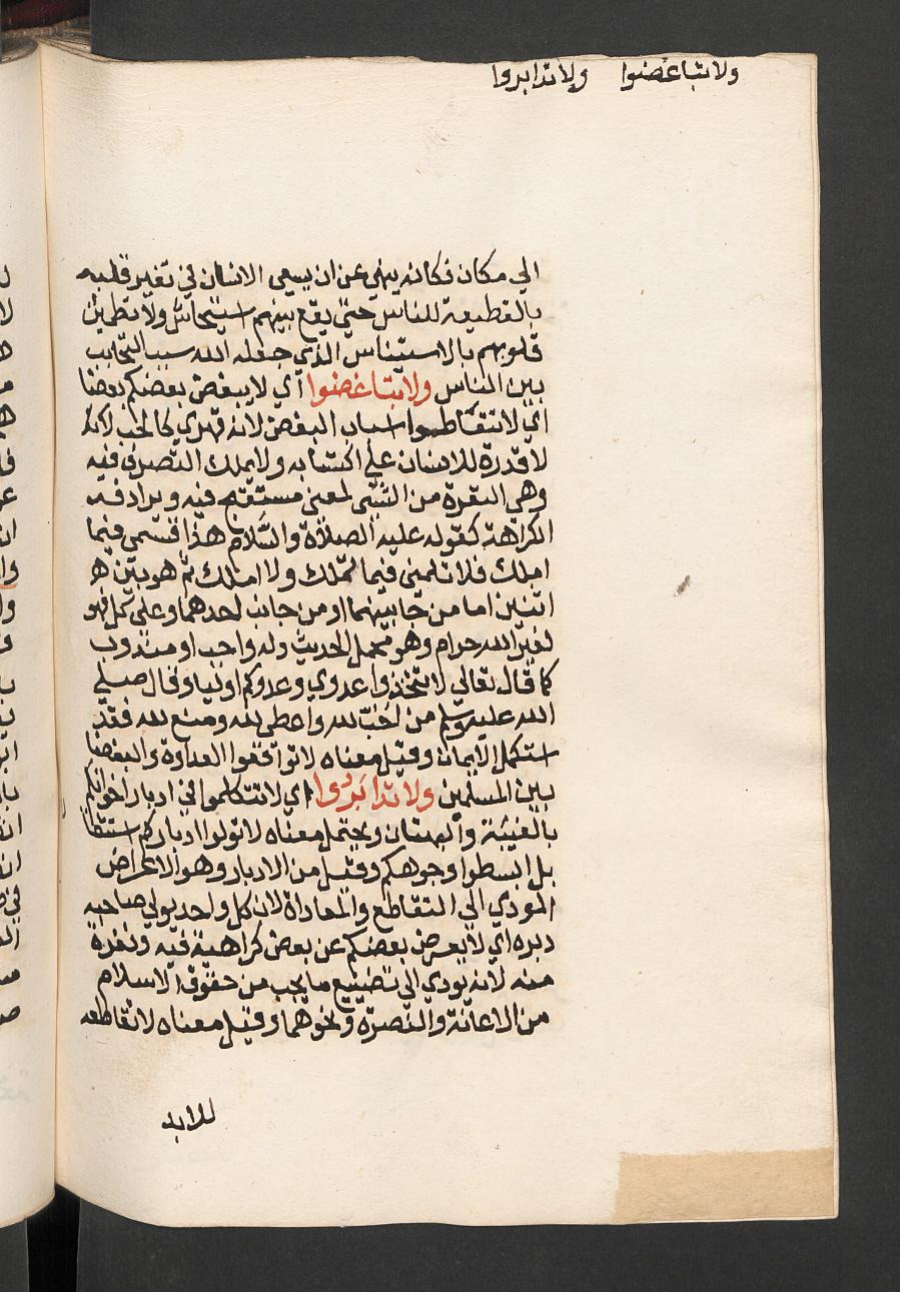 ولا تباغضوا ولا تدابروا
الي مكان فكانه ينهي عن ان يسعي الانسان في تغير قلبه
بالقطيعة للناس حتي يقع بينهم استيحاش ولا تطمئن
قلوبهم بالاستيناس الذي جعله الله سببا لتحابب
بين الناس ولا تباغضوا اي لا يبغض بعضكم بعضا
اي لا تتقاطوا اسباب البغض لانه قهري كالحب لانه
لا قدرة للانسان علي اكتسابه ولا يملك التصرف فيه
وهي النفرة من الشي لمعني مستقبح فيه ويرادفه
الكراهة كقوله عليه الصلاة والسلام هذا قسمي فيما
املك فلا تلمني فيما تملك ولا املك ثم هو بين
اثنين اما من جانبيهما او من جانب احدهما وعلي كل فهو
لغير الله حرام وهو محمل الحديث وله واجب او مندوب
كما قال تعالي لا تتخذوا عدوي وعدوكم اوليا وقال صلي
الله عليه وسلم من احب لله واعطي لله ومنع لله فقد
استكمل الايمان وقيل معناه لا توقعوا العداوة والبغضا
بين المسلمين ولا تدابروا اي لا تتكلموا في ادبار اخوانكم
بالغيبة والبهتان ويحتمل معناه لا تولوا ادباركم
بل ابسطوا وجوهكم وقيل من الادبار وهو الاعراض
المودي الي التقاطع والمعاداة لان كل واحد يولي صاحبه
دبره اي لا يعرض بعضكم عن بعض كراهية فيه ونفرة
منه لانه يودي الي تضييع ما يجب من حقوق الاسلام
من الاعانة والنصرة ونحوهما وقيل معناه لا تقاطعه
للابد